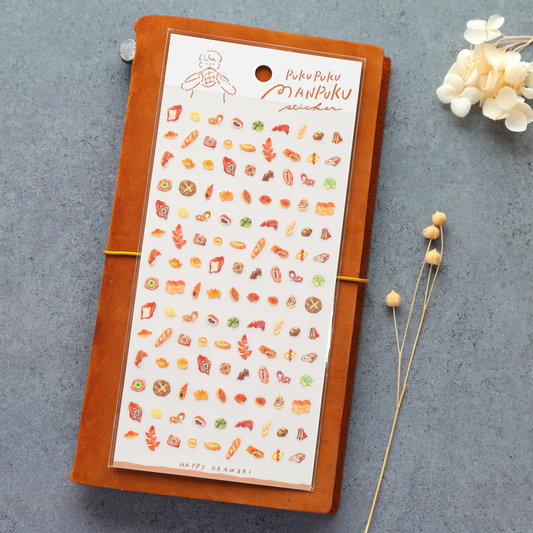 PUKU PUKU
MANPUKU
sticker
HAPPY OKAWARI